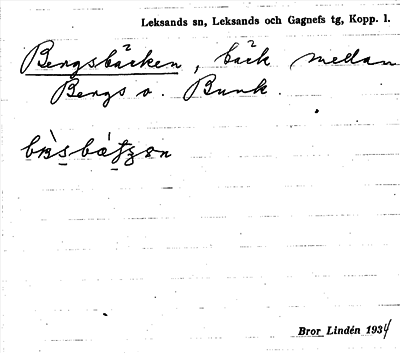 Leksands sn, Leksands och Gagnefs tg, Kopp. l.
Bergsbäcken, bäck medan
Bergs o. Bunk.
Bror Lindén 1934